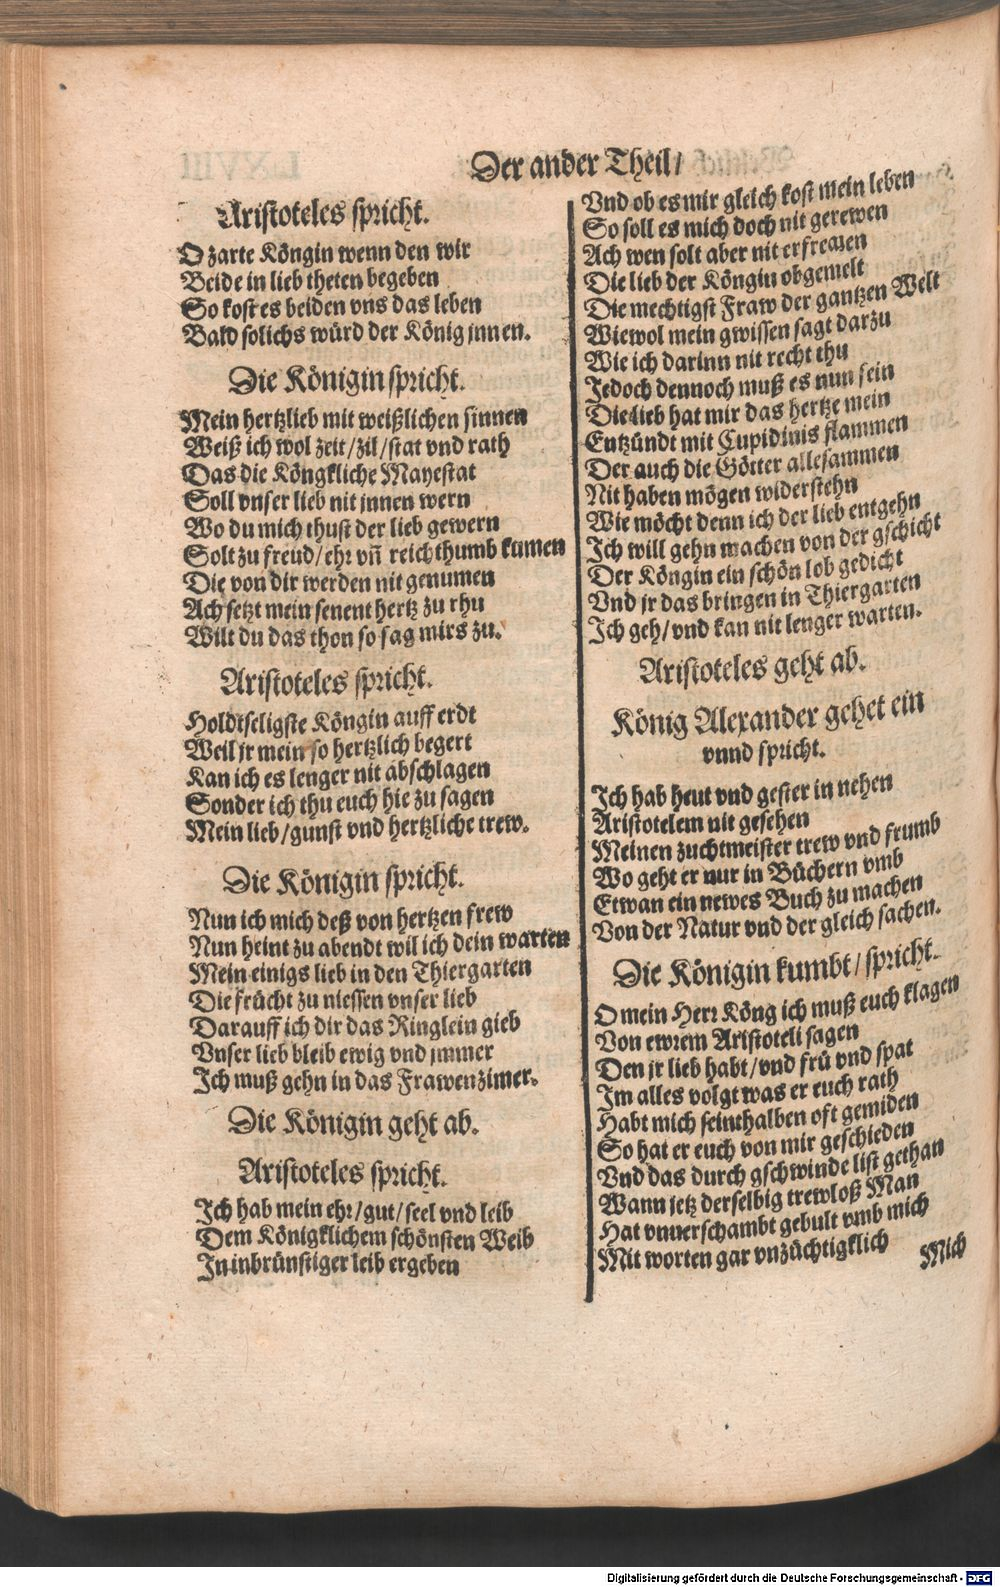 Der ander Theil/
Aristoteles spricht.
O zarte Köngin wenn den wir
Beide in lieb theten begeben
So kost es beiden vns das leben
Bald solichs würd der König jnnen.
Die Königin spricht.
Mein hertzlieb mit weißlichen sinnen
Weiß ich wol zeit/zil/stat vnd rath
Das die Köngkliche Mayestat
Soll vnser lieb nit jnnen wern
Wo du mich thust der lieb gewern
Solt zu freud/ehr vñ reichthumb kumen
Die von dir werden nit genumen
Ach setzt mein senent hertz zu rhu
Wilt du das thon so sag mirs zu.
Aristoteles spricht.
Holdtseligste Köngin auff erdt
Weil jr mein so hertzlich begert
Kan ich es lenger nit abschlagen
Sonder ich thu euch hie zu sagen
Mein lieb/gunst vnd hertzliche trew.
Die Königin spricht.
Nun ich mich deß von hertzen frew
Nun heint zu abendt wil ich dein warten
Mein einigs lieb in den Thiergarten
Die frücht zu niessen vnser lieb
Darauff ich dir das Ringlein gieb
Vnser lieb bleib ewig vnd jmmer
Ich muß gehn in das Frawenzimer.
Die Königin geht ab.
Aristoteles spricht.
Ich hab mein ehr/gut/seel vnd leib
Dem Königklichem schönsten Weib
In inbrünstiger leib ergeben
Vnd ob es mir gleich kost mein leben
So soll es mich doch nit gerewen
Ach wen solt aber nit erfrewen
Die lieb der Köngin obgemelt
Die mechtigst Fraw der gantzen Welt
Wiewol mein gwissen sagt darzu
Wie ich darinn nit recht thu
Jedoch dennoch muß es nun sein
Die lieb hat mir das hertze mein
Entzündt mit Cupidinis flammen
Der auch die Götter allesammen
Nit haben mögen widerstehn
Wie möcht denn ich der lieb entgehn
Ich will gehn machen von der gschicht
Der Köngin ein schön lob gedicht
Vnd jr das bringen in Thiergarten
Ich geh/vnd kan nit lenger warten.
Aristoteles geht ab.
König Alexander gehet ein
vnnd spricht.
Ich hab heut vnd gester in nehen
Aristotelem nit gesehen
Meinen zuchtmeister trew vnd frumb
Wo geht er nur in Büchern vmb
Etwan ein newes Buch zu machen
Von der Natur vnd der gleich sachen.
Die Königin kumbt/spricht.
O mein Herr Köng ich muß euch klagen
Von ewrem Aristoteli sagen
Den jr lieb habt/vnd frü vnd spat
Im alles volgt was er euch rath
Habt mich seinthalben oft gemiden
So hat er euch von mir geschieden
Vnd das durch gschwinde list gethan
Wann jetz derselbig trewloß Man
Hat vnuerschambt gebult vmb mich
Mit worten gar vnzüchtigklich
Mich
Digitalisierung gefördert durch die Deutsche Forschungsgemeinschaft - DFG